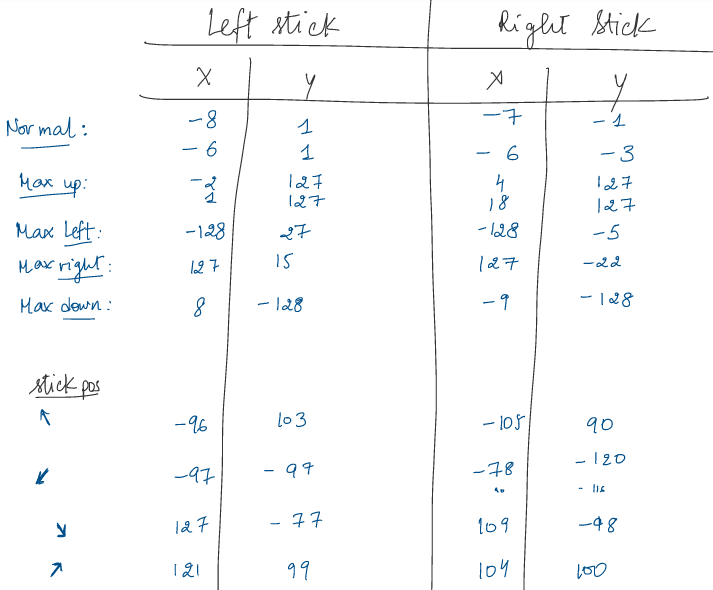 Left stick Right Stick
x y x y
Normal: -8 1 -7 -1
-6 1 -6 -3
Max up: -2 127 4 127
1 127 18 127
Max left: -128 27 -128 -5
Max right: 127 15 127 -22
Max down: 8 -128 -9 -128
stick pos
↖ -96 103 -105 90
↙ -97 -97 -78 -120
- 116
↘ 127 -77 109 -98
↗ 121 99 104 100